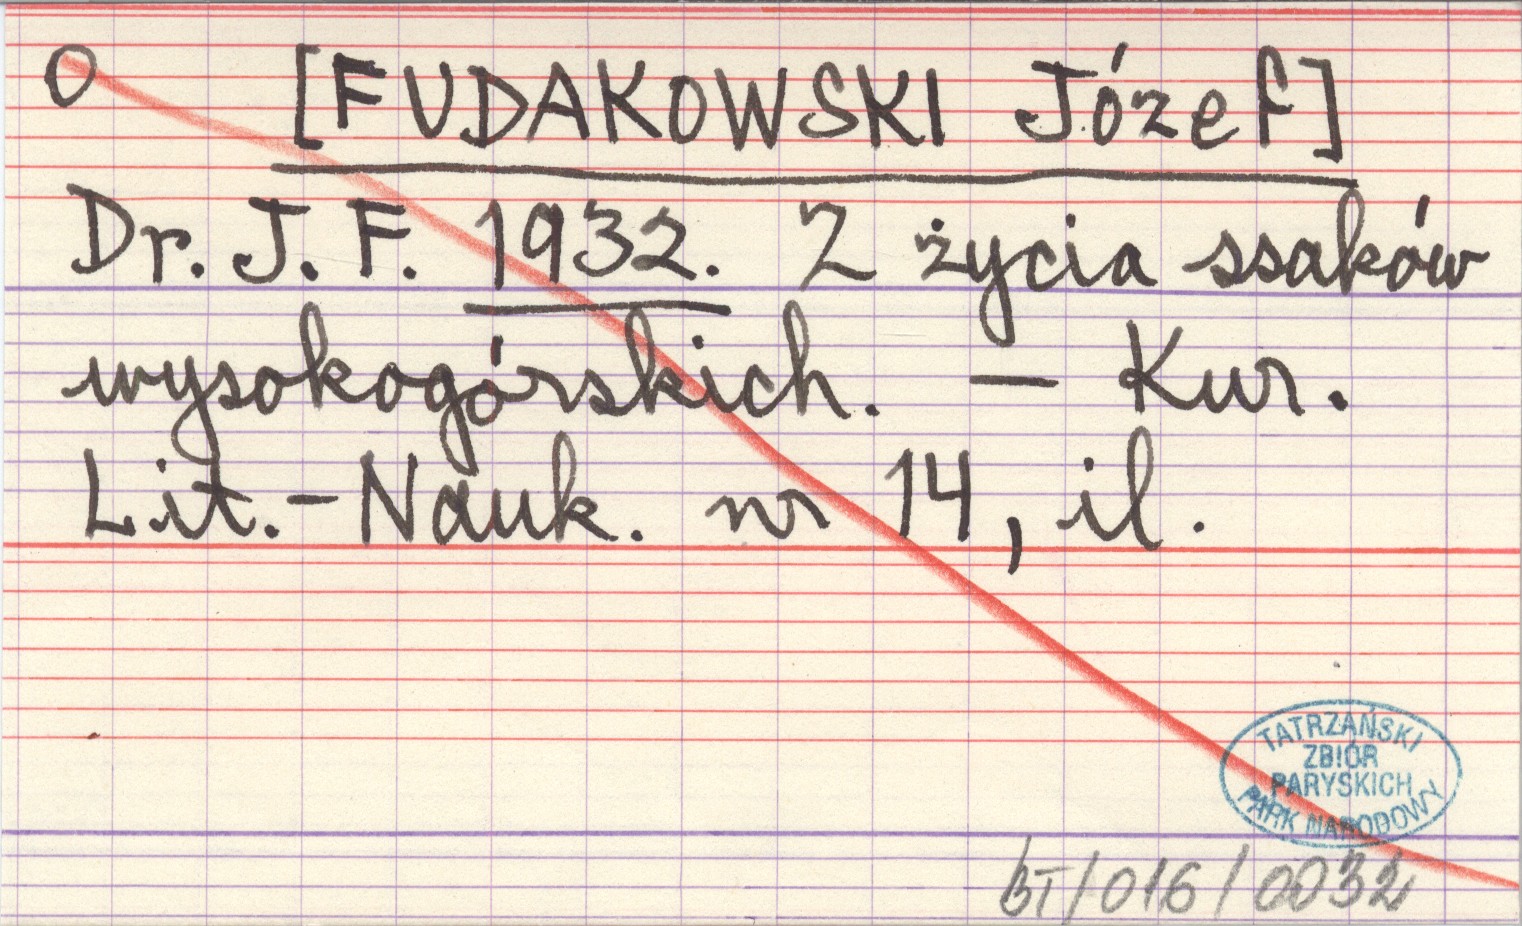 O [FUDAKOWSKI Józef]
Dr. J. F. 1932. Z życia ssaków
wysokogórskich. — Kur.
Lit.-Nauk. nr 14, il.
TATRZAŃSKI
ZBIÓR
PARYSKICH
PARK NARODOWY
BT/016/0032